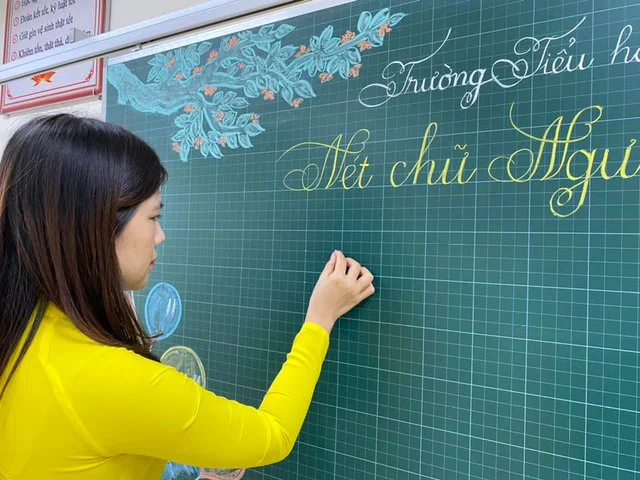 Đoàn kết tốt, kỷ luật tốt
Giữ gìn vệ sinh thật tốt
Khiêm tốn, thật thà, d
Trường Tiểu h
Nét chữ Ngư